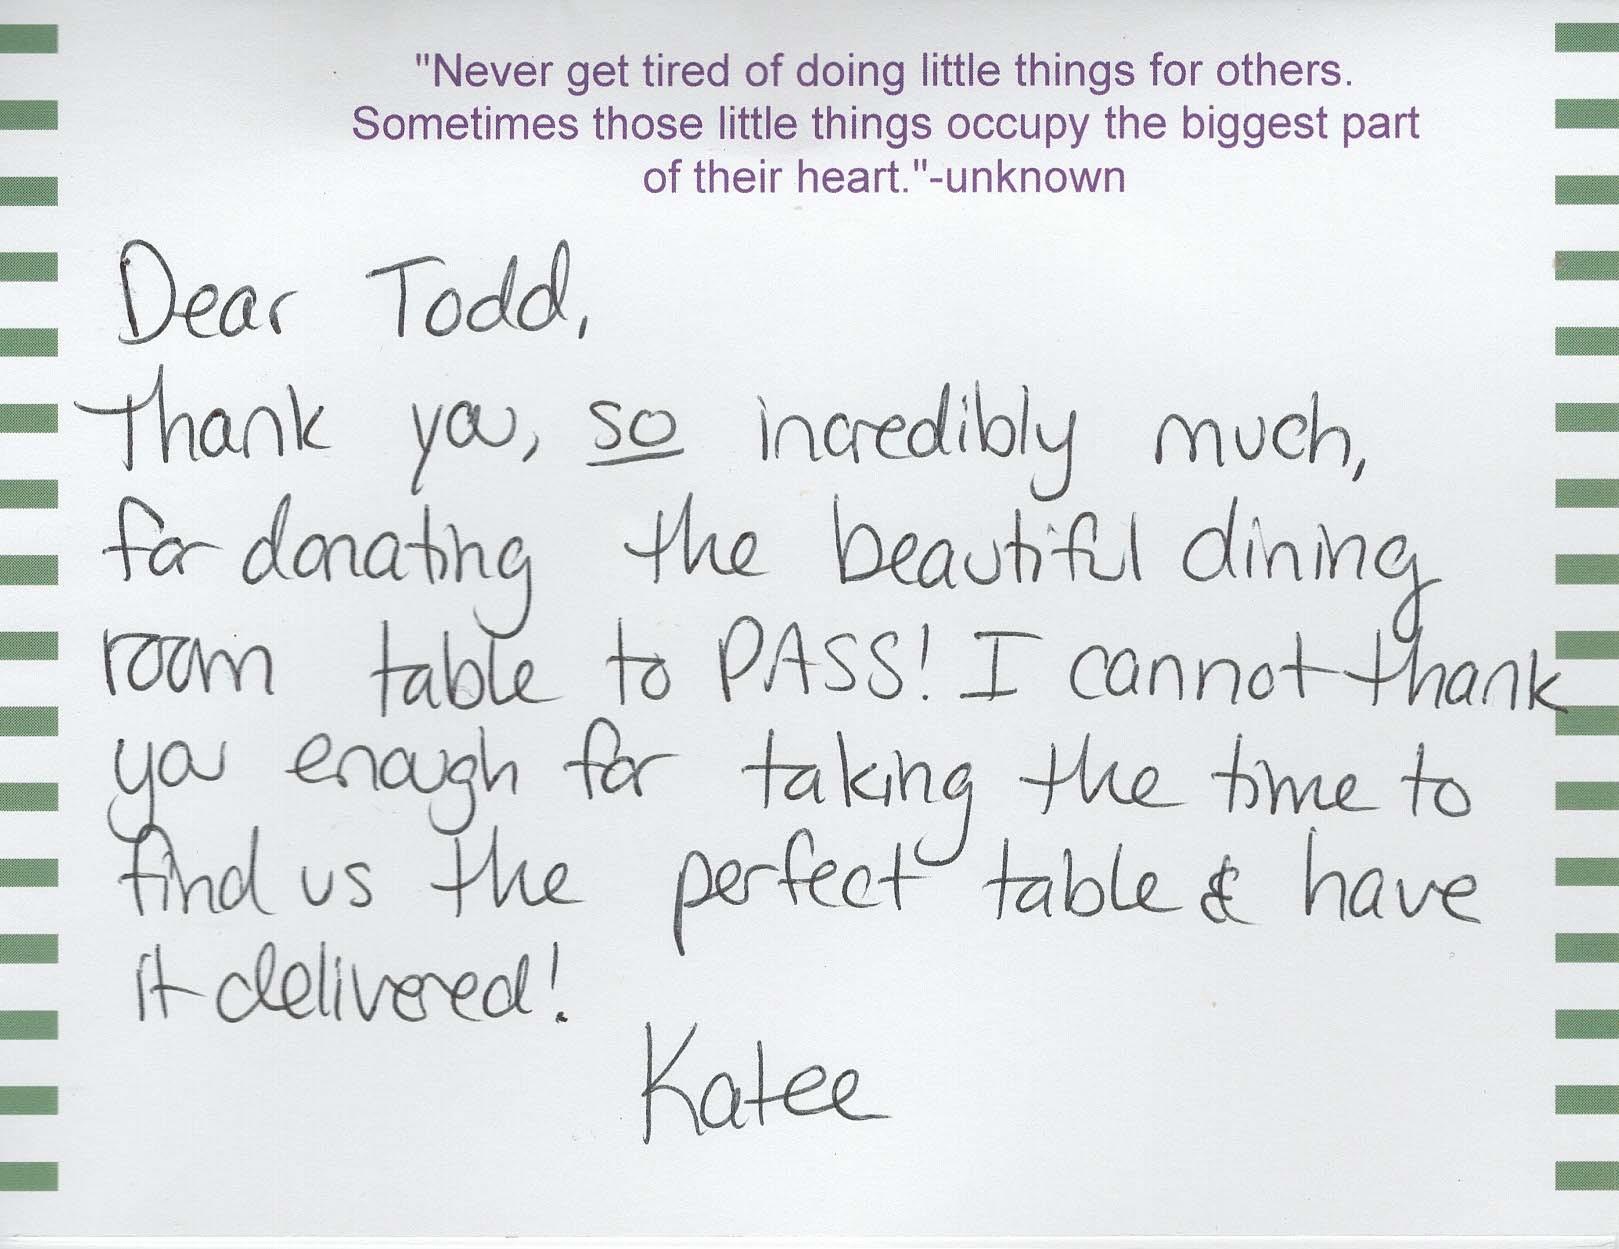 "Never get tired of doing little things for others.
Sometimes those little things occupy the biggest part
of their heart."-unknown
Dear Todd,
Thank you, so incredibly much,
for donating the beautiful dining
room table to PASS! I cannot thank
you enough for taking the time to
find us the perfect table & have
it delivered!
Katee